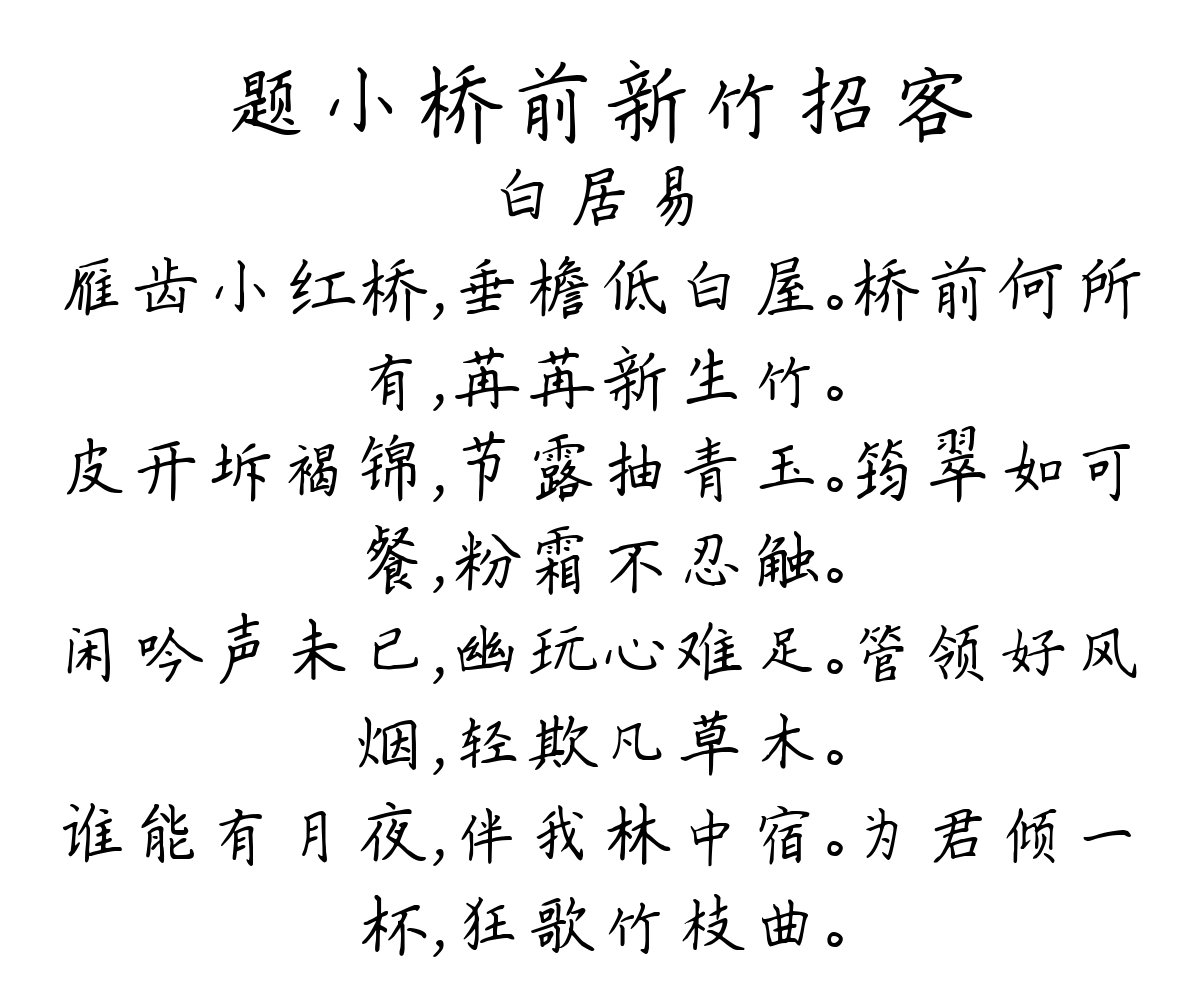 题小桥前新竹招客
白居易
雁齿小红桥,垂檐低白屋。桥前何所
有,苒苒新生竹。
皮开坼褐锦,节露抽青玉。筠翠如可
餐,粉霜不忍触。
闲吟声未已,幽玩心难足。管领好风
烟,轻欺凡草木。
谁能有月夜,伴我林中宿。为君倾一
杯,狂歌竹枝曲。